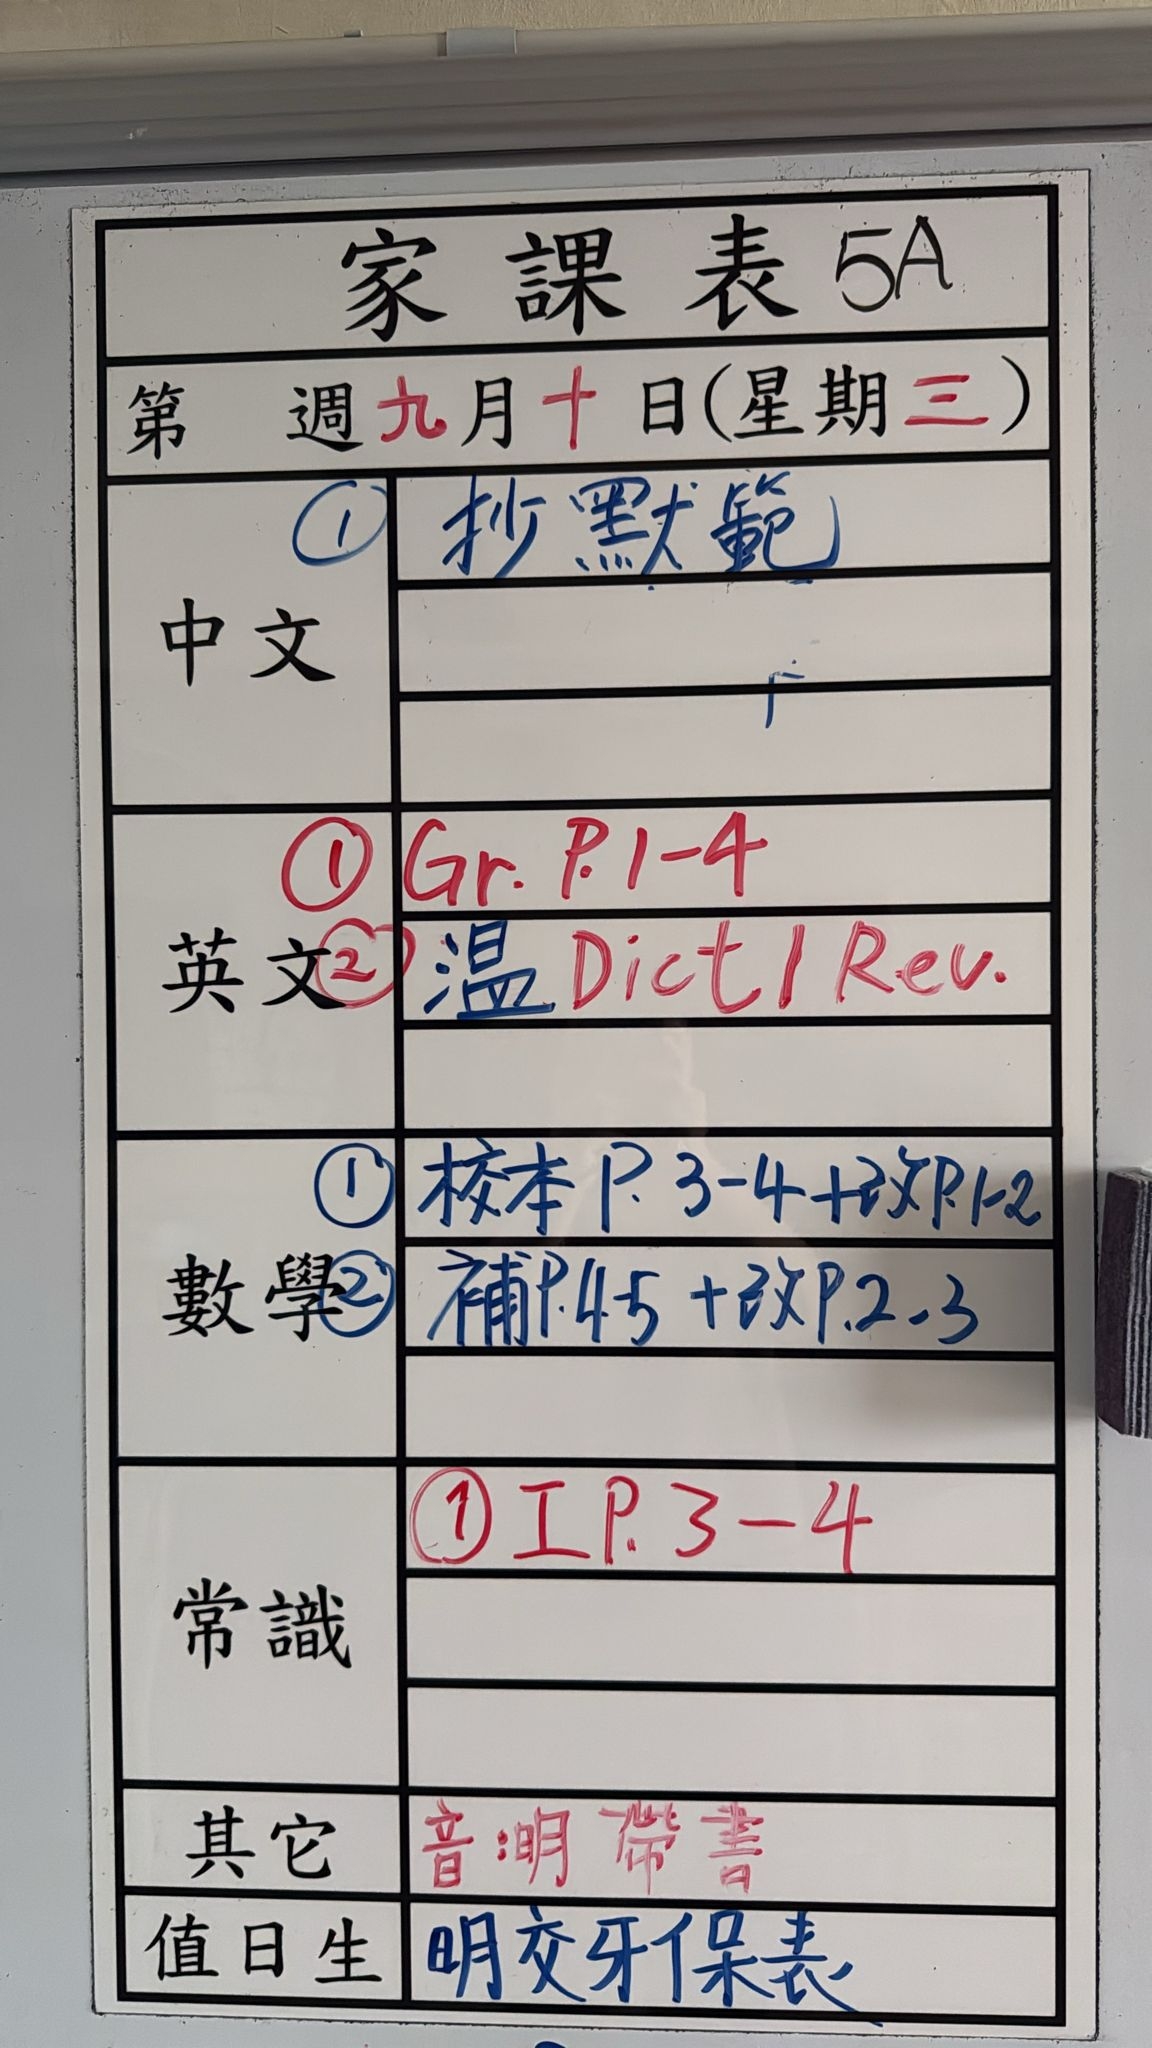 家課表 5A
第 週九月十日(星期三)
中文
① 抄默範
英文
① Gr. P.1-4
② 溫 Dict 1 Rev.
數學
① 校本 P. 3-4+改P.1-2
② 補P.45+改P.2.3
常識
① I P. 3-4
其它
音:明帶書
值日生
明交牙保表